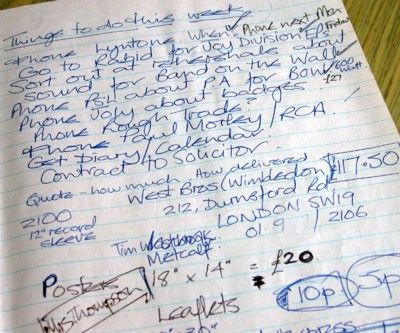 Things to do this week
Phone Lyntone when? Phone next Mon
Friday
Go to Rapid for Joy Division EPs
Sort out at Petherhals about
sound for Band on the Wall
Phone Pol about PA for Bowl
£27
Phone Joly about badges.
Phone Rough Trade?
Phone Paul Morley / RCA.
Get Diary / Calendar.
Contract to Solicitor.
Quote - how much. How delivered
£117.50
West Bros (Wimbledon)
2100
12" record
sleeve
212, Durnsford Rd
LONDON SW19
Tim
Metcalf.
01. 9 / 2106
Posters 18" x 14" = £20
Mrs Thompson
10p
5p
Leaflets